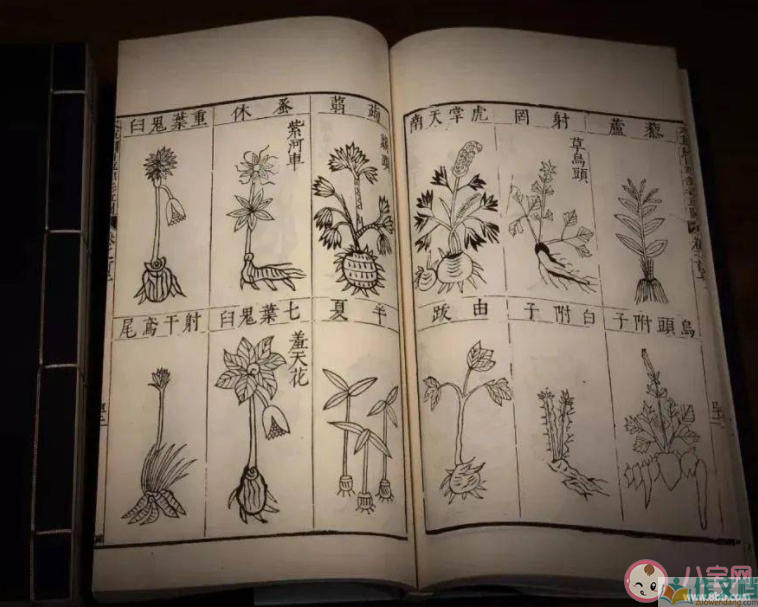 藜蘆
射罔
草烏頭
虎掌天南
烏頭附子
白附子
由跋
蒟蒻
蚤休
紫河車
重葉鬼臼
半夏
七葉鬼臼
羞天花
射干鳶尾
八宝网
zuowendang.com